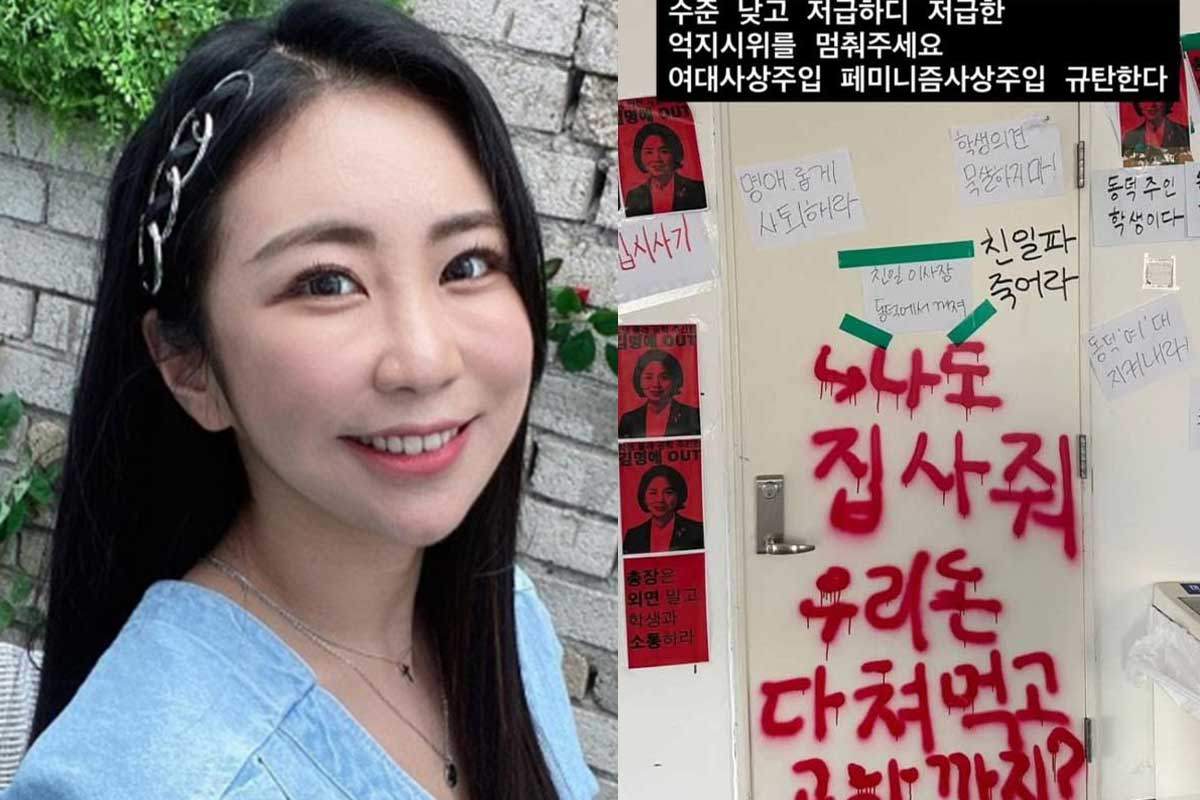 수준 낮고 저급하디 저급한
억지시위를 멈춰주세요
여대사상주입 페미니즘사상주입 규탄한다
OUT
명애롭게
사퇴해라
학생의견
묵살하지마!
동덕 주인
학생이다
친일 이사장
동덕에서 꺼져
친일파
죽어라
동덕'여'대
지켜내라!
↳나도
집사줘
우리돈
다쳐먹고
김명애 OUT
김명애 OUT
총장은
외면 말고
학생과
소통하라